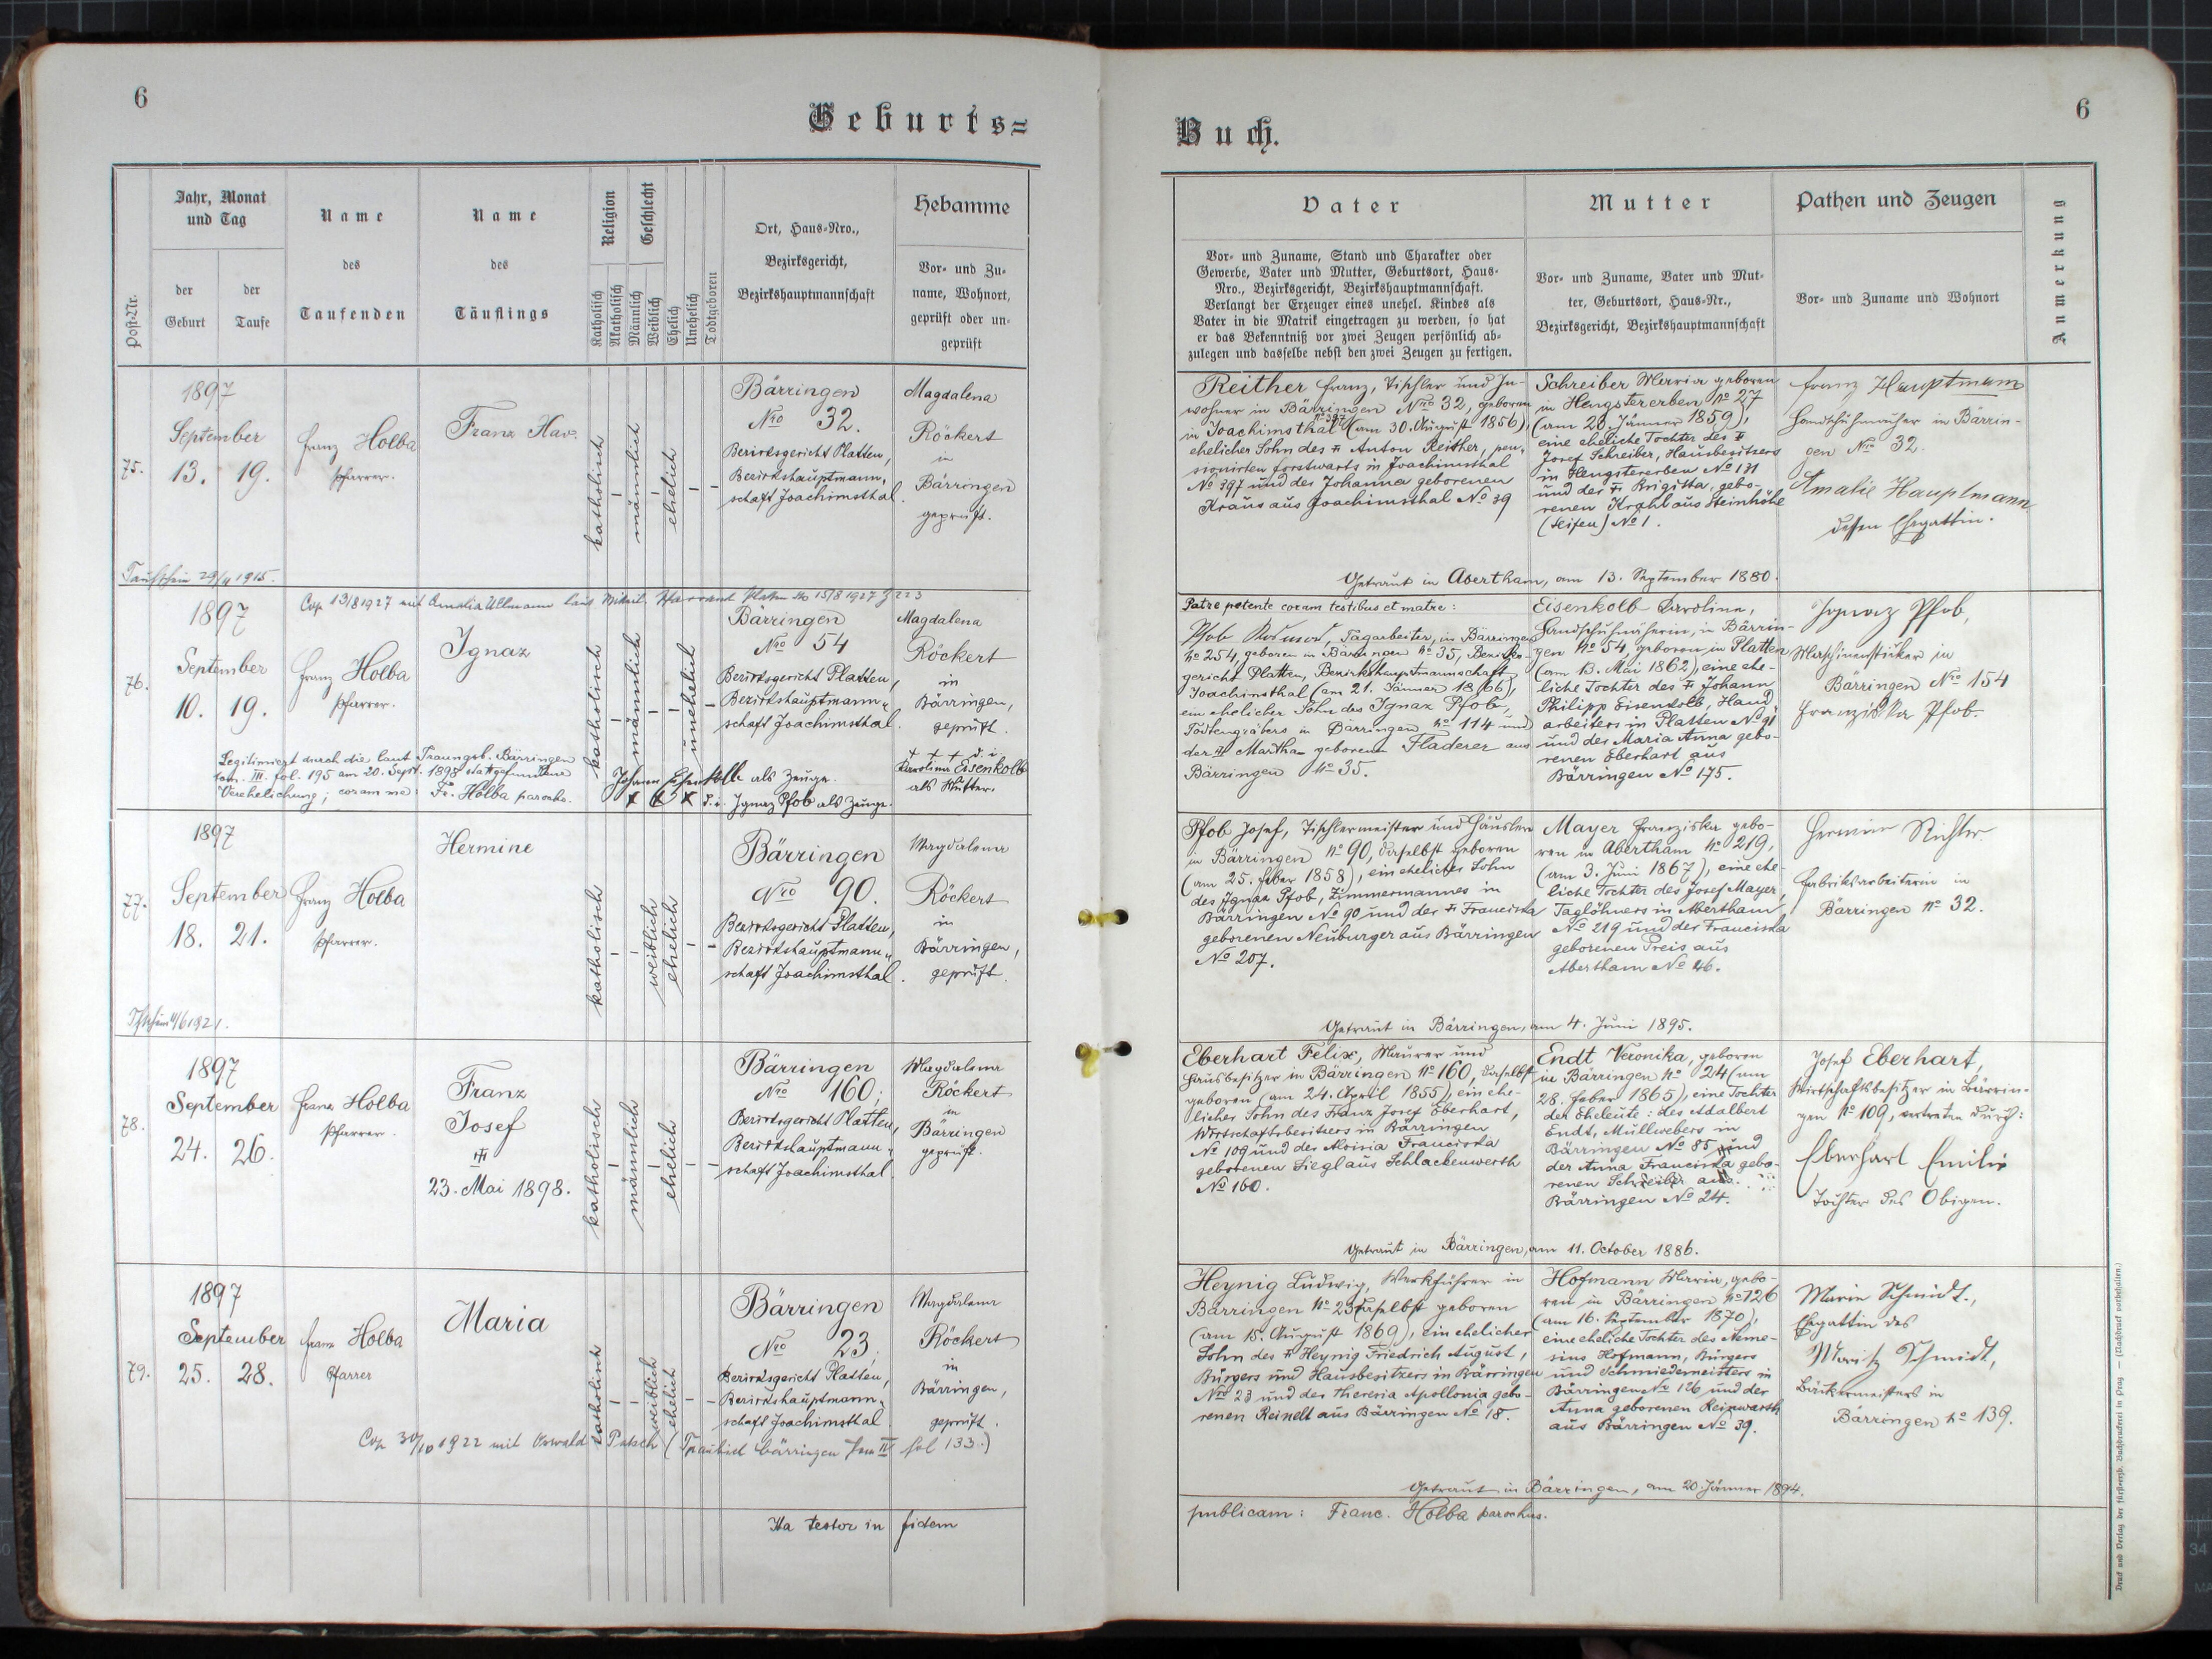 6
Geburts=
Post-Nr.
Jahr, Monat
und Tag
der
Geburt
der
Taufe
Name
des
Taufenden
Name
des
Täuflings
Religion
Katholisch
Akatholisch
Geschlecht
Männlich
Weiblich
Ehelich
Unehelich
Todtgeboren
Ort, Haus-Nro.,
Bezirksgericht,
Bezirkshauptmannschaft
Hebamme
Vor- und Zu-
name, Wohnort,
geprüft oder un-
geprüft
75.
1897
September
13. 19.
Franz Holba
Pfarrer.
Franz Xav.
katholisch
männlich
ehelich
Bärringen
Nro 32.
Bezirksgericht Platten,
Bezirkshauptmann-
schaft Joachimsthal.
Magdalena
Röckert
in
Bärringen
geprüft.
Taufschein 1915.
76.
Cop. 13/8 1927 mit Amalia Ullmann laut 15/8 1927
1897
September
10. 19.
Franz Holba
Pfarrer.
Ignaz
katholisch
männlich
unehelich
Bärringen
Nro 54
Bezirksgericht Platten,
Bezirkshauptmann-
schaft Joachimsthal.
Magdalena
Röckert
in
Bärringen,
geprüft.
Legitimiert durch die laut Trauungsb. Bärringen
tom. III. fol. 195 am 20. Sept. 1898 stattgefundene
Verehelichung; coram me: Fr. Holba parocho.
Johann Eisenkolb als Zeuge.
+ + + d. i. Ignaz Pfob als Zeuge.
+ + + d. i.
Karolina Eisenkolb
als Mutter.
77.
1897
September
18. 21.
Franz Holba
Pfarrer.
Hermine
katholisch
weiblich
ehelich
Bärringen
Nro 90.
Bezirksgericht Platten,
Bezirkshauptmann-
schaft Joachimsthal.
Magdalena
Röckert
in
Bärringen,
geprüft.
1921.
78.
1897
September
24. 26.
Franz Holba
Pfarrer.
Franz
Josef
23. Mai 1898.
katholisch
männlich
ehelich
Bärringen
Nro 160;
Bezirksgericht Platten,
Bezirkshauptmann-
schaft Joachimsthal
Magdalena
Röckert
in
Bärringen
geprüft.
79.
1897
September
25. 28.
Franz Holba
Pfarrer
Maria
katholisch
weiblich
ehelich
Bärringen
Nro 23;
Bezirksgericht Platten,
Bezirkshauptmann-
schaft Joachimsthal.
Magdalena
Röckert
in
Bärringen,
geprüft.
Cop 30/10 1922 mit Oswald Putsch (Bärringen tom IV fol 133.)
Ita testor in fidem
6
Buch.
Vater
Vor- und Zuname, Stand und Charakter oder
Gewerbe, Vater und Mutter, Geburtsort, Haus-
Nro., Bezirksgericht, Bezirkshauptmannschaft.
Verlangt der Erzeuger eines unehel. Kindes als
Vater in die Matrik eingetragen zu werden, so hat
er das Bekenntniß vor zwei Zeugen persönlich ab-
zulegen und dasselbe nebst den zwei Zeugen zu fertigen.
Mutter
Vor- und Zuname, Vater und Mut-
ter, Geburtsort, Haus-Nr.,
Bezirksgericht, Bezirkshauptmannschaft
Pathen und Zeugen
Vor- und Zuname und Wohnort
Anmerkung
Reither Franz, Tischler und In-
wohner in Bärringen Nro 32, geboren
in Joachimsthal No 397 (am 30. August 1856),
ehelicher Sohn des Anton Reither, pen-
sionirten Forstwarts in Joachimsthal
No 397 und der Johanna geborenen
Kraus aus Joachimsthal No 39
Schreiber Maria geboren
in Hengstererben No 27
(am 20. Jänner 1859),
eine eheliche Tochter des
Josef Schreiber, Hausbesitzers
in Hengstererben No 131
und der Brigitta, gebo-
renen Krahl aus Steinhöhe
(Seifen) No 1.
Franz Hauptmann
Handschuhmacher in Bärrin-
gen Nro 32.
Amalie Hauptmann
dessen Ehegattin.
Getraut in Abertham, am 13. September 1880.
Patre petente coram testibus et matre:
Pfob, Tagarbeiter, in Bärringen
No 254, geboren in Bärringen No 35, Bezirks-
gericht Platten, Bezirkshauptmannschaft
Joachimsthal (am 21. Jänner 1866),
ein ehelicher Sohn des Ignaz Pfob,
Todtengräbers in Bärringen No 114 und
der Martha geborenen Fladerer aus
Bärringen No 35.
Eisenkolb Karolina,
Handschuhnäherin, in Bärrin-
gen No 54, geboren in Platten
(am 13. Mai 1862), eine ehe-
liche Tochter des Johann
Philipp Eisenkolb, Hand-
arbeiters in Platten No 91
und der Maria Anna gebo-
renen Eberhart aus
Bärringen No 175.
Ignaz Pfob,
Maschinensticker in
Bärringen Nro 154
Franziska Pfob.
Pfob Josef, Tischlermeister und Häusler
in Bärringen No 90, daselbst geboren
(am 25. Feber 1858), ein ehelicher Sohn
des Ignaz Pfob, Zimmermannes in
Bärringen No 90 und der Franciska
geborenen Neuburger aus Bärringen
No 207.
Mayer Franziska gebo-
ren in Abertham No 219,
(am 3. Juni 1867), eine ehe-
liche Tochter des Josef Mayer,
Taglöhners in Abertham
No 219 und der Franciska
geborenen Preis aus
Abertham No 46.
Hermine Richter
Fabriksarbeiterin in
Bärringen No 32.
Getraut in Bärringen, am 4. Juni 1895.
Eberhart Felix, Maurer und
Hausbesitzer in Bärringen No 160, daselbst
geboren (am 24. April 1855), ein ehe-
licher Sohn des Franz Josef Eberhart,
Wirtschaftsbesitzers in Bärringen
No 109 und der Aloisia Franciska
geborenen Siegl aus Schlackenwerth
No 160.
Endt Veronika, geboren
in Bärringen No 24 (am
28. Feber 1865), eine Tochter
der Eheleute: des Adalbert
Endt, Müllwebers in
Bärringen No 85 und
der Anna Franciska gebo-
renen Schreiber aus
Bärringen No 24.
Josef Eberhart,
Wirtschaftsbesitzer in Bärrin-
gen No 109, vertreten durch:
Eberhart Emilie
Tochter des Obigen.
Getraut in Bärringen, am 11. October 1886.
Heynig Ludwig, Werkführer in
Bärringen No 23 daselbst geboren
(am 15. August 1869), ein ehelicher
Sohn des Heynig Friedrich August,
Bürgers und Hausbesitzers in Bärringen
Nro 23 und der Theresia Apollonia gebo-
renen Reinelt aus Bärringen No 18.
Hofmann Maria, gebo-
ren in Bärringen No 126
(am 16. September 1870),
eine eheliche Tochter des Neme-
sius Hofmann, Bürgers
und Schmiedemeisters in
Bärringen No 126 und der
Anna geborenen Reinwarth
aus Bärringen No 39.
Marie Schmidt,
Ehegattin des
Moritz Schmidt,
Bäckermeisters in
Bärringen No 139.
Getraut in Bärringen, am 20. Jänner 1894.
publicam: Franc. Holba parochus.
Druck und Verlag der fürsterzb. Buchdruckerei in Prag — (Nachdruck vorbehalten.)
34